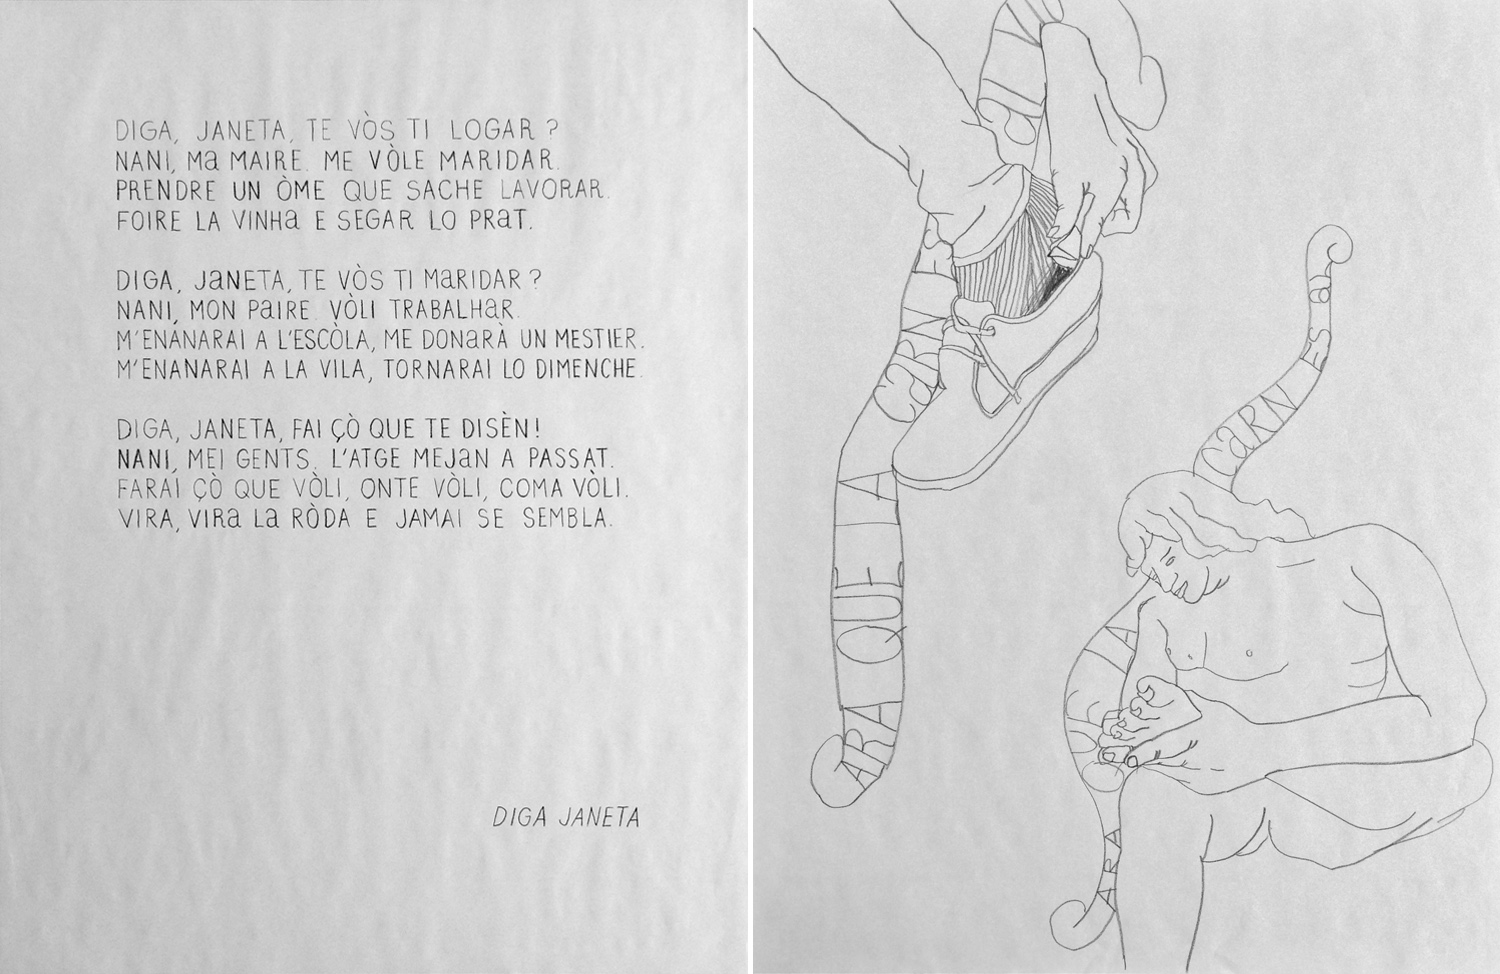 DIGA, JANETA, TE VÒS TI LOGAR ?
NANI, Ma MAIRE. ME VÒLE MARIDAR.
PRENDRE UN ÒME QUE SACHE LAVORAR.
FOIRE LA VINHa E SEGAR LO PRaT.
DIGA, JaNETA, TE VÒS TI MaRIDAR ?
NANI, MON PaIRE. VÒLI TRABALHaR.
M'ENANARAI A L'ESCÒLA, ME DONaRÀ UN MESTIER.
M'ENANARAI A LA VILA, TORNARAI LO DIMENCHE.
DIGA, JANETA, FAI ÇÒ QUE TE DISÈN!
NANI, MEI GENTS. L'ATGE MEJaN A PASSAT.
FARAI ÇÒ QUE VÒLI, ONTE VÒLI, COMA VÒLI.
VIRA, VIRa La RÒDA E JAMAI SE SEMBLA.
DIGA JANETA
ARA QUE IA CARN
ARA
IA
CaRN ES aL